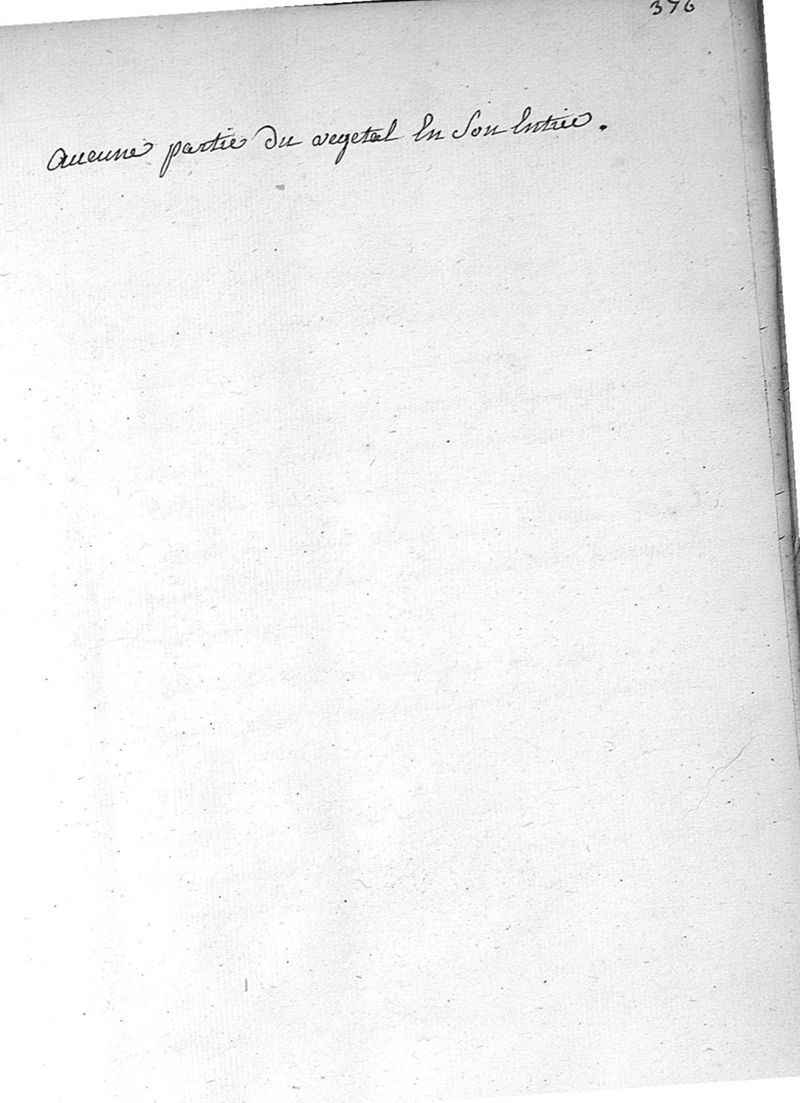 376
aucune partie du vegetal en son entier.